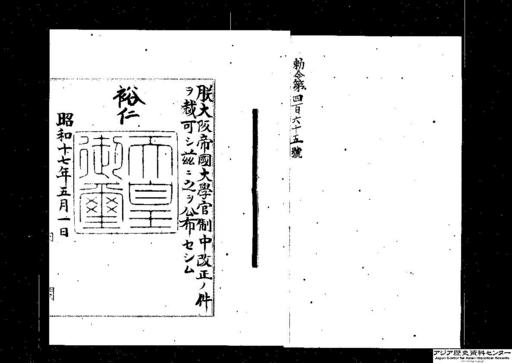 勅令第四百六十五號
朕大阪帝國大學官制中改正ノ件
ヲ裁可シ茲ニ之ヲ公布セシム
裕仁
天皇
御璽
昭和十七年五月一日
アジア歴史資料センター
Japan Center for Asian Historical Records